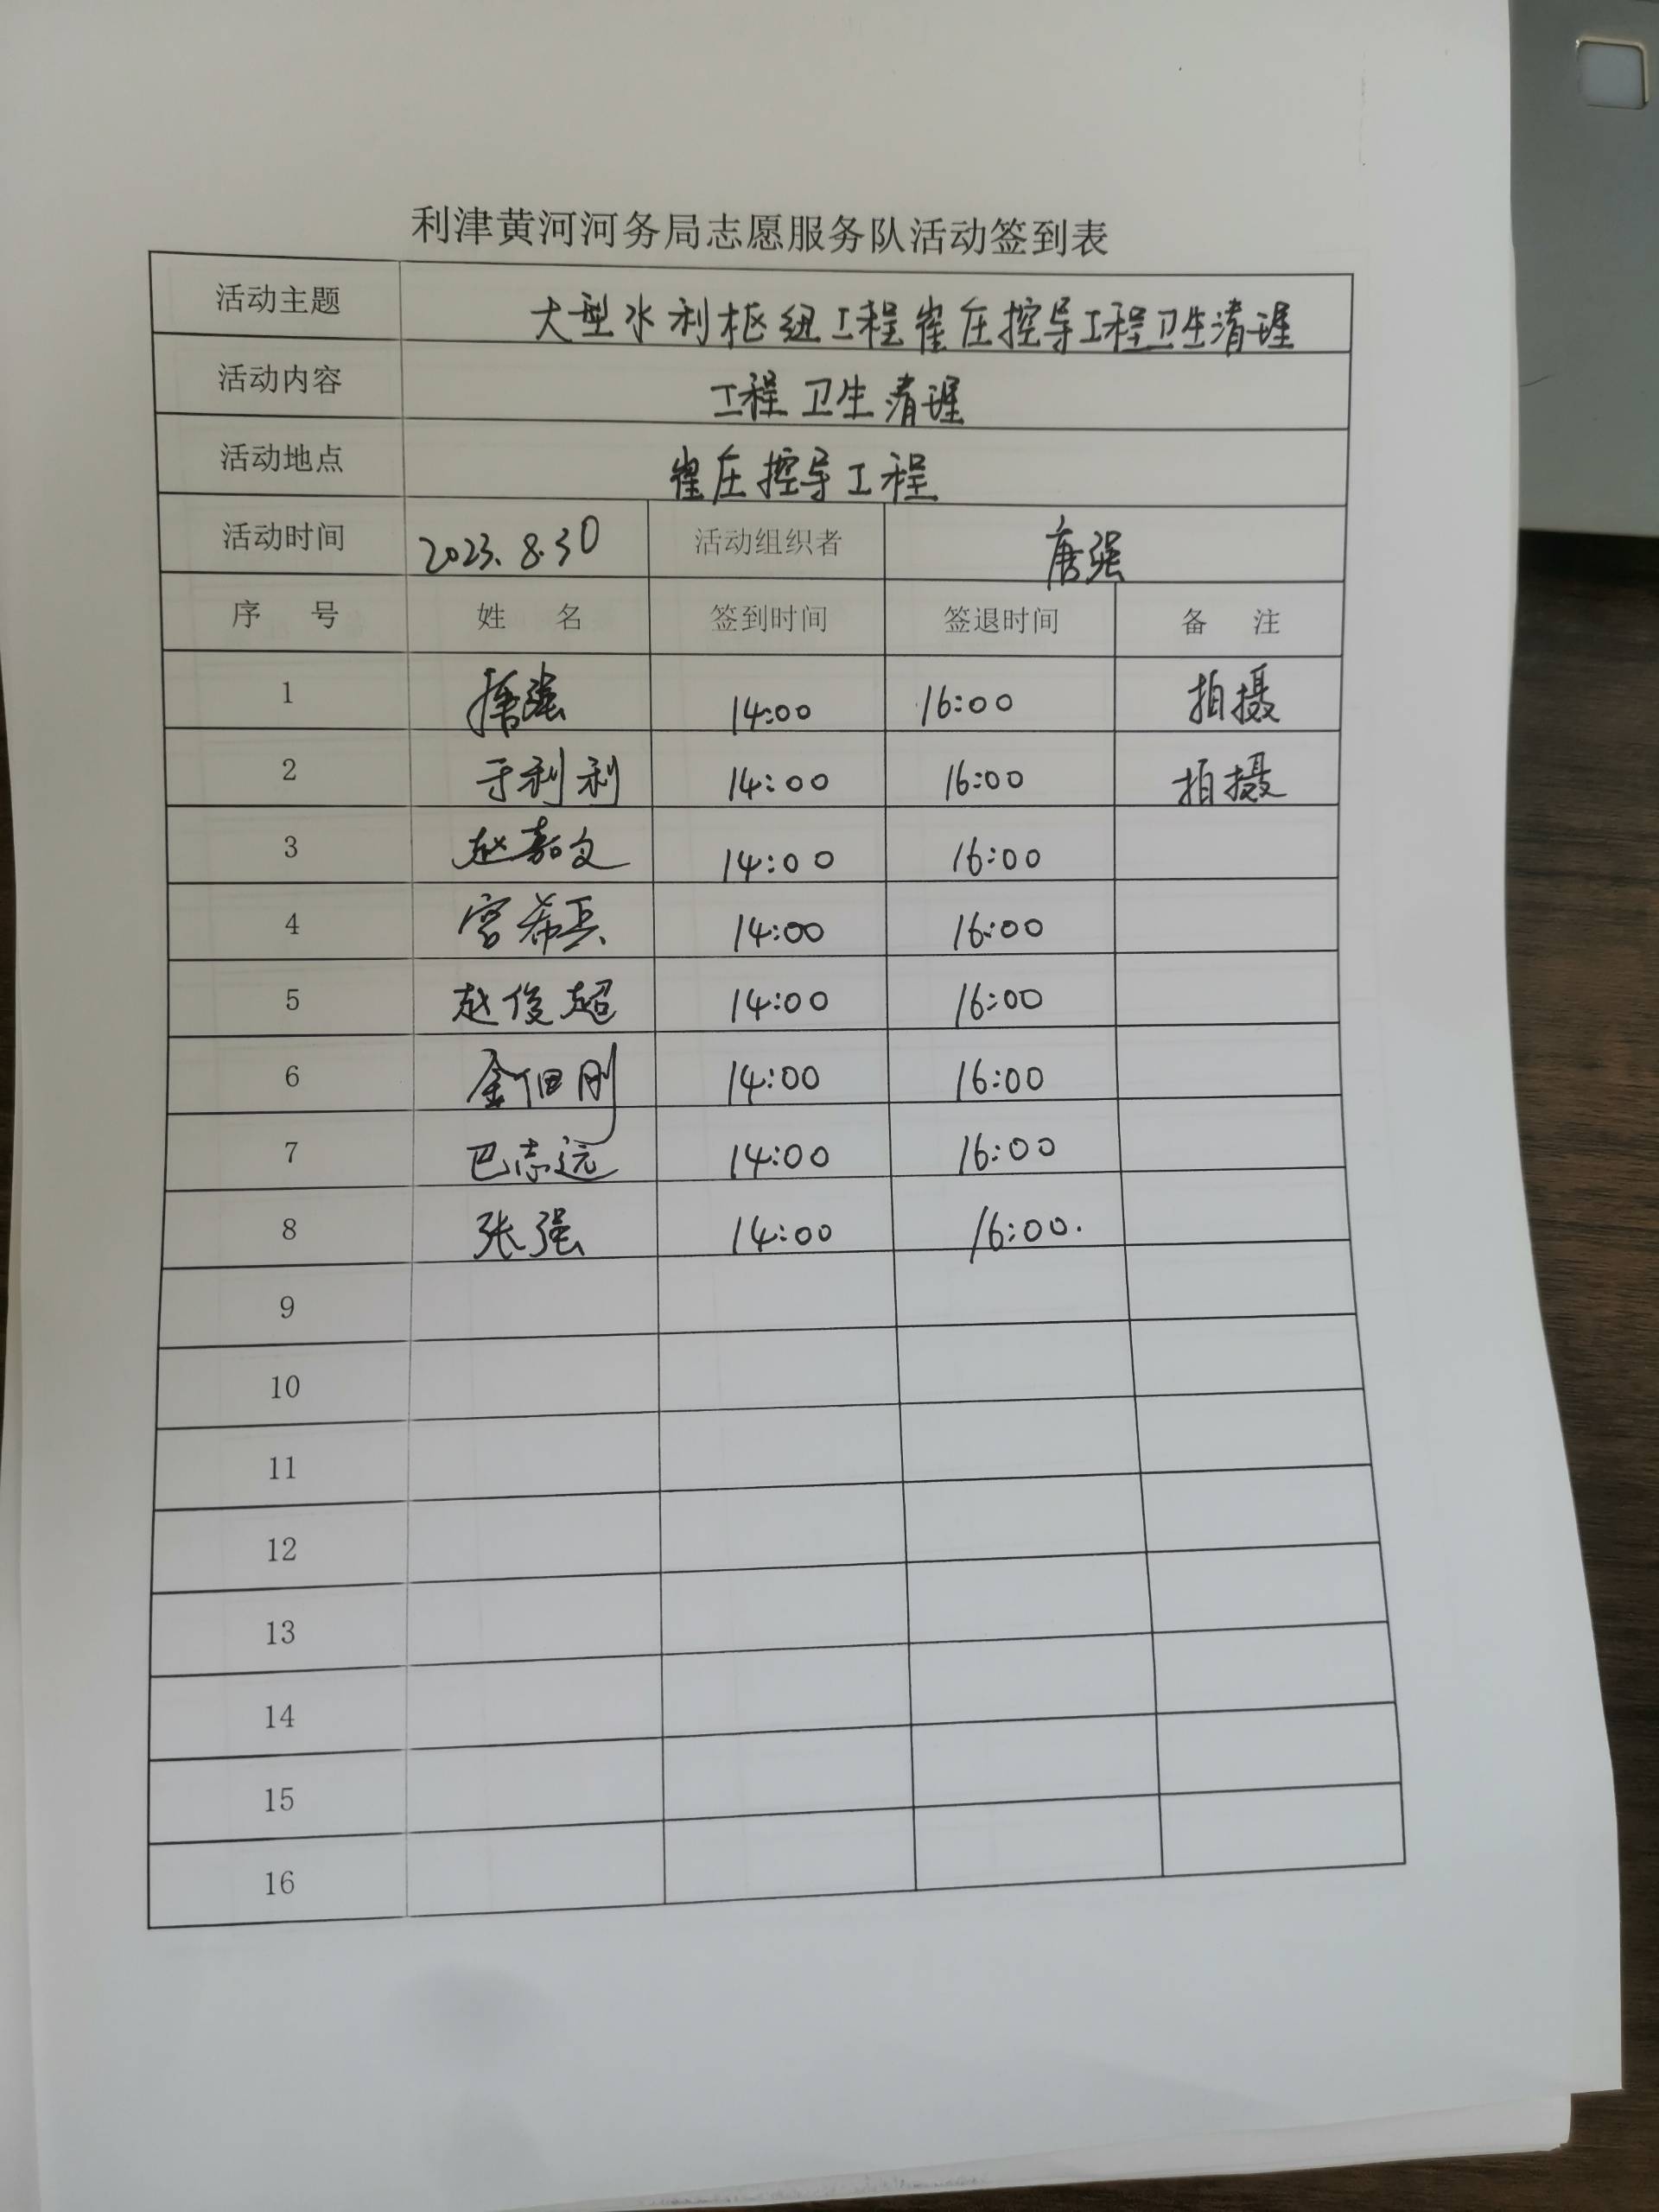 利津黄河河务局志愿服务队活动签到表
活动主题 大型水利枢纽工程崔庄控导工程卫生清理
活动内容 工程卫生清理
活动地点 崔庄控导工程
活动时间 2023.8.30 活动组织者 唐强
序 号 姓 名 签到时间 签退时间 备 注
1 唐强 14:00 16:00 拍摄
2 于利利 14:00 16:00 拍摄
3 赵嘉文 14:00 16:00
4 宫希兵 14:00 16:00
5 赵俊超 14:00 16:00
6 金佃刚 14:00 16:00
7 巴志远 14:00 16:00
8 张强 14:00 16:00.
9
10
11
12
13
14
15
16